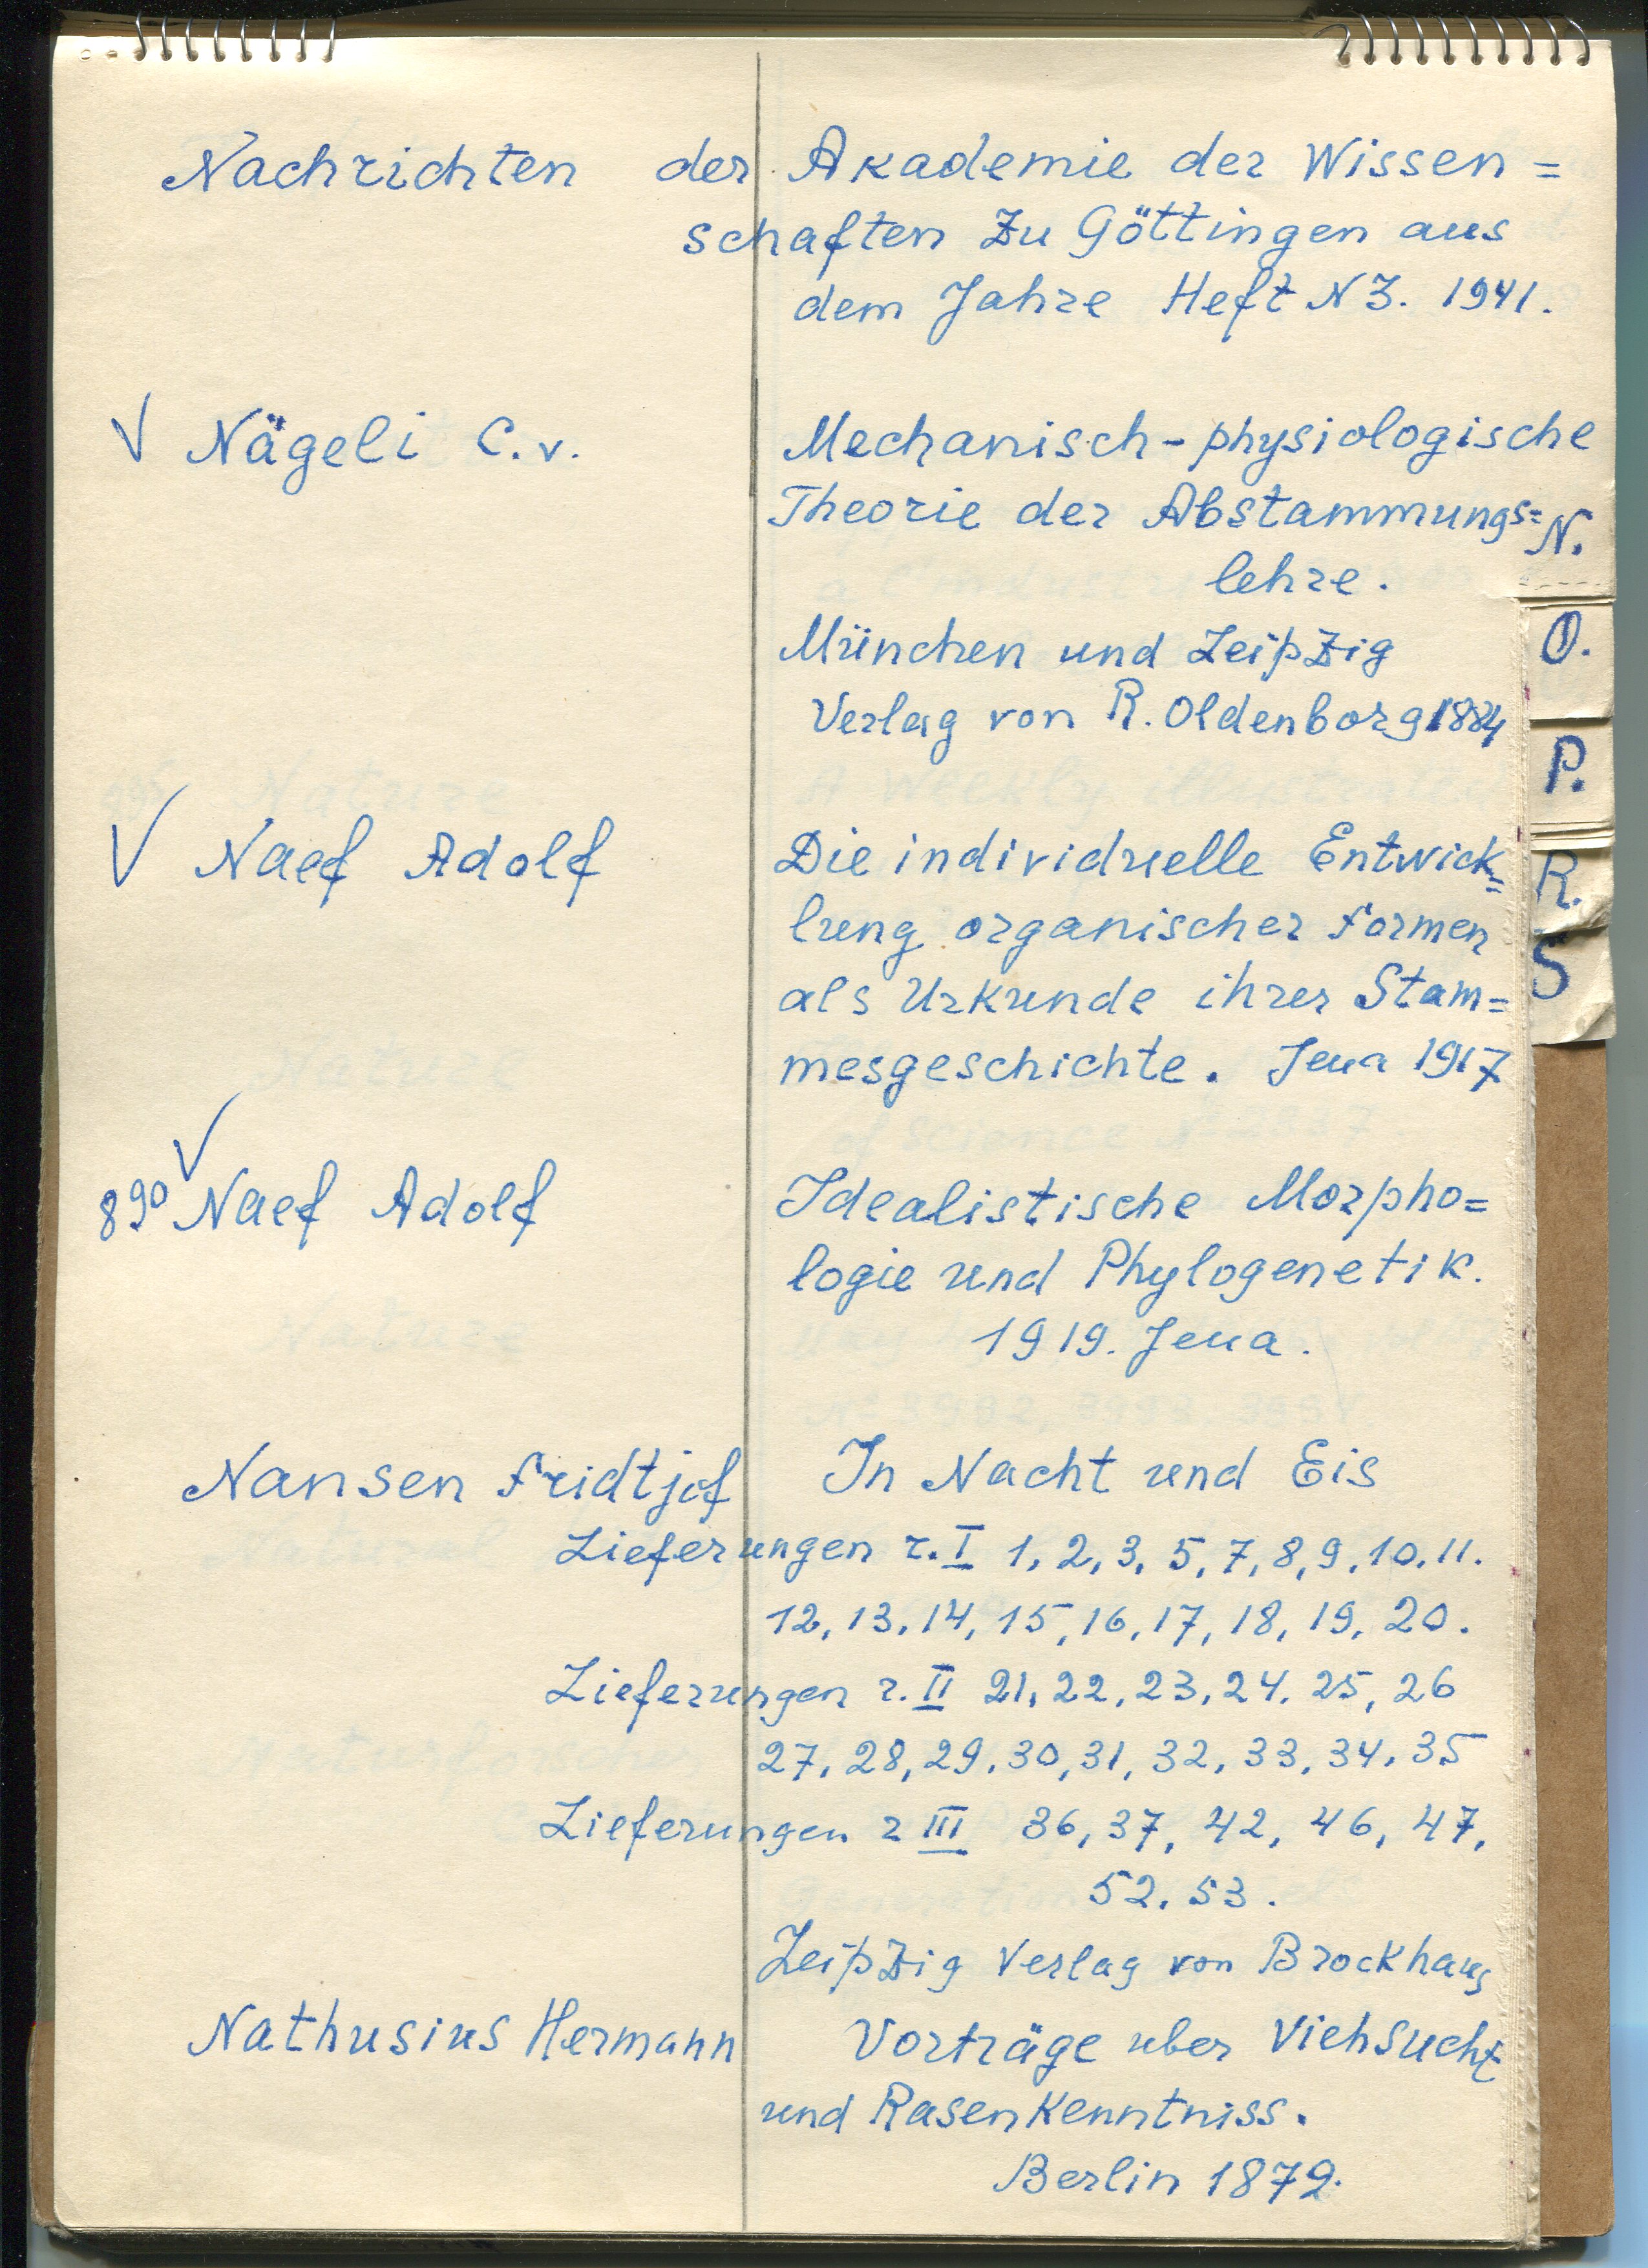 Nachrichten der Akademie der Wissen=
schaften Zu Göttingen aus
dem Jahre Heft N 3. 1941.
V Nägeli C.v. Mechanisch-physiologische
Theorie der Abstammungs=
lehre.
München und Leipzig
Verlag von R. Oldenborg 1884
V Naef Adolf Die individuelle Entwick=
lung organischer Formen
als Urkunde ihrer Stam=
mesgeschichte. Jena 1917
V
890 Naef Adolf Idealistische Morpho=
logie und Phylogenetik.
1919. Jena.
Nansen Fridtjof In Nacht und Eis
Lieferungen r. I 1, 2, 3, 5, 7, 8, 9, 10, 11.
12, 13, 14, 15, 16, 17, 18, 19, 20.
Lieferungen r. II 21, 22, 23, 24, 25, 26
27, 28, 29, 30, 31, 32, 33, 34, 35
Lieferungen r III 36, 37, 42, 46, 47,
52, 53.
Leipzig Verlag von Brockhaus
Nathusius Hermann Vorträge uber Viehsucht
und Rasenkenntniss.
Berlin 1872.
N.
O.
P.
R.
S